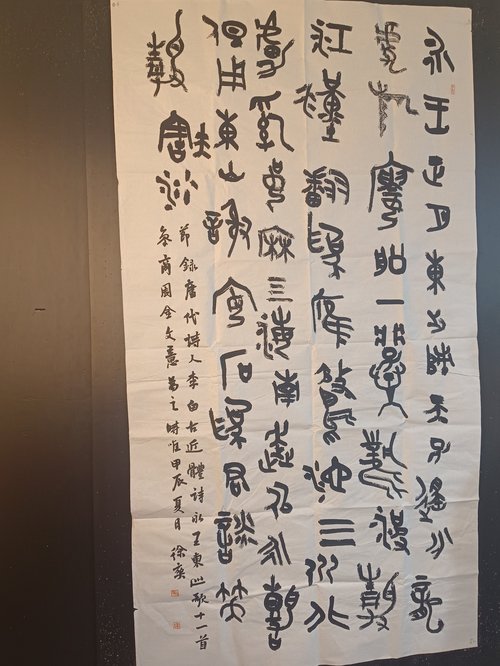 永王正月東出師天子遙分龍
虎旗樓船一舉風波靜
江漢翻爲雁鶩池三川北
虜亂如麻四海南奔似永嘉
但用東山謝安石爲君談笑
靜胡沙
節錄唐代詩人李白古近體詩永王東巡歌十一首
參商周金文意爲之時惟甲辰夏月徐